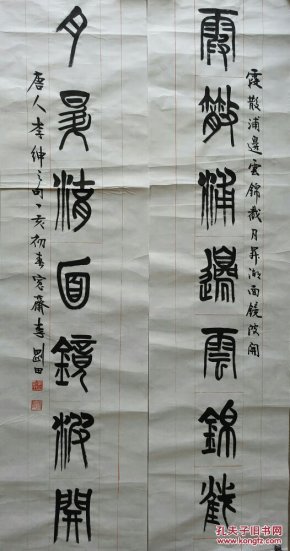 霞散浦邊雲錦截
霞散浦邊雲錦截月昇湖面鏡波開
月昇湖面鏡波開
唐人李紳句丁亥初春窓齋李劉田
孔夫子旧书网